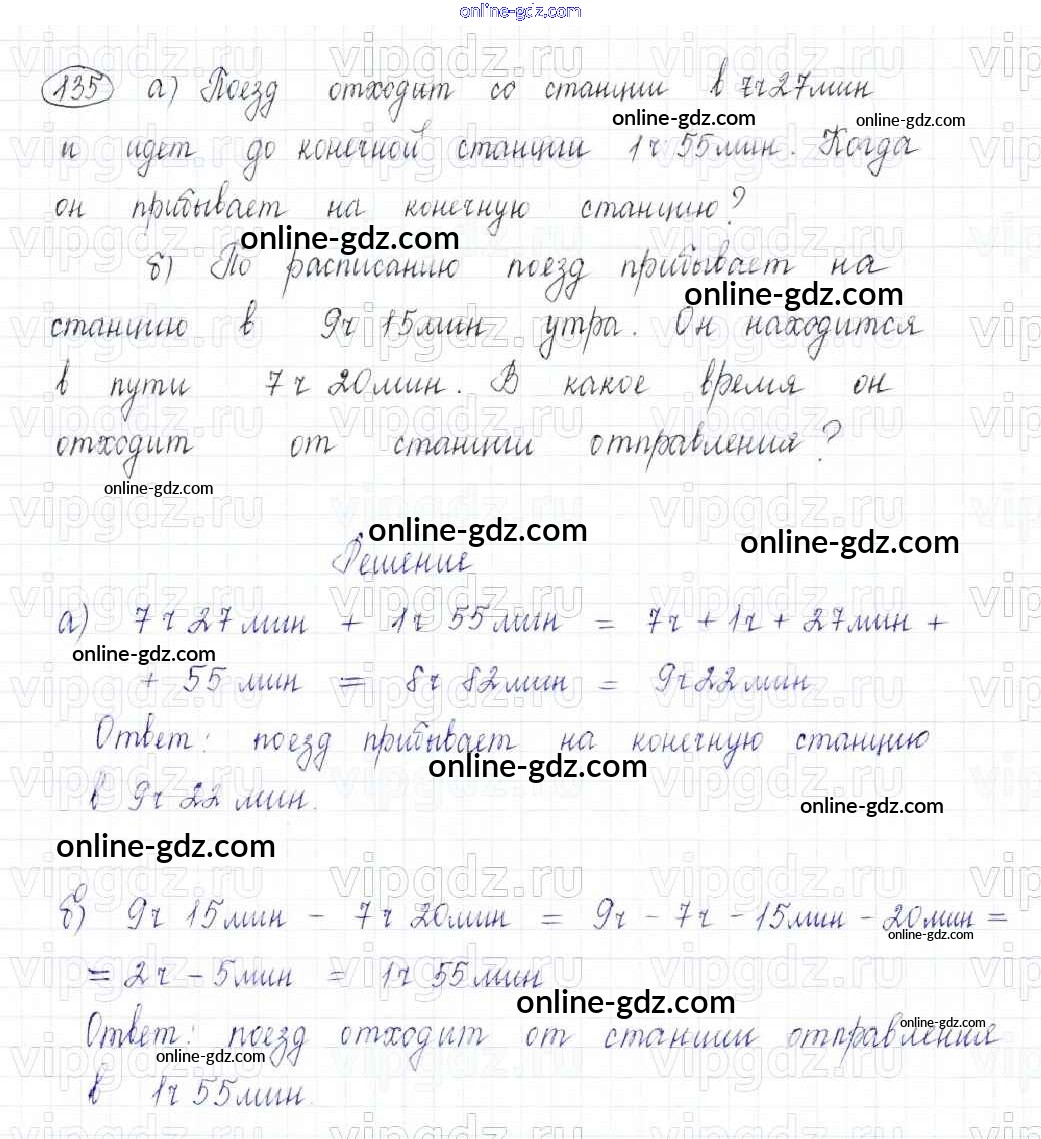 online-gdz.com
135 а) Поезд отходит со станции в 7ч 27мин
online-gdz.com online-gdz.com
и идет до конечной станции 1ч 55мин. Когда
он прибывает на конечную станцию?
online-gdz.com
б) По расписанию поезд прибывает на
online-gdz.com
станцию в 9ч 15мин утра. Он находится
в пути 7ч 20мин. В какое время он
отходит от станции отправления?
online-gdz.com
online-gdz.com online-gdz.com
Решение
а) 7ч 27мин + 1ч 55мин = 7ч + 1ч + 27мин +
online-gdz.com
+ 55 мин = 8ч 82мин = 9ч 22мин
Ответ: поезд прибывает на конечную станцию
online-gdz.com
в 9ч 22 мин.
online-gdz.com
online-gdz.com
б) 9ч 15мин - 7ч 20мин = 9ч - 7ч - 15мин - 20мин =
online-gdz.com
= 2ч - 5мин = 1ч 55мин
online-gdz.com
Ответ: поезд отходит от станции отправления
online-gdz.com online-gdz.com
в 1ч 55мин.
vipgdz.ru